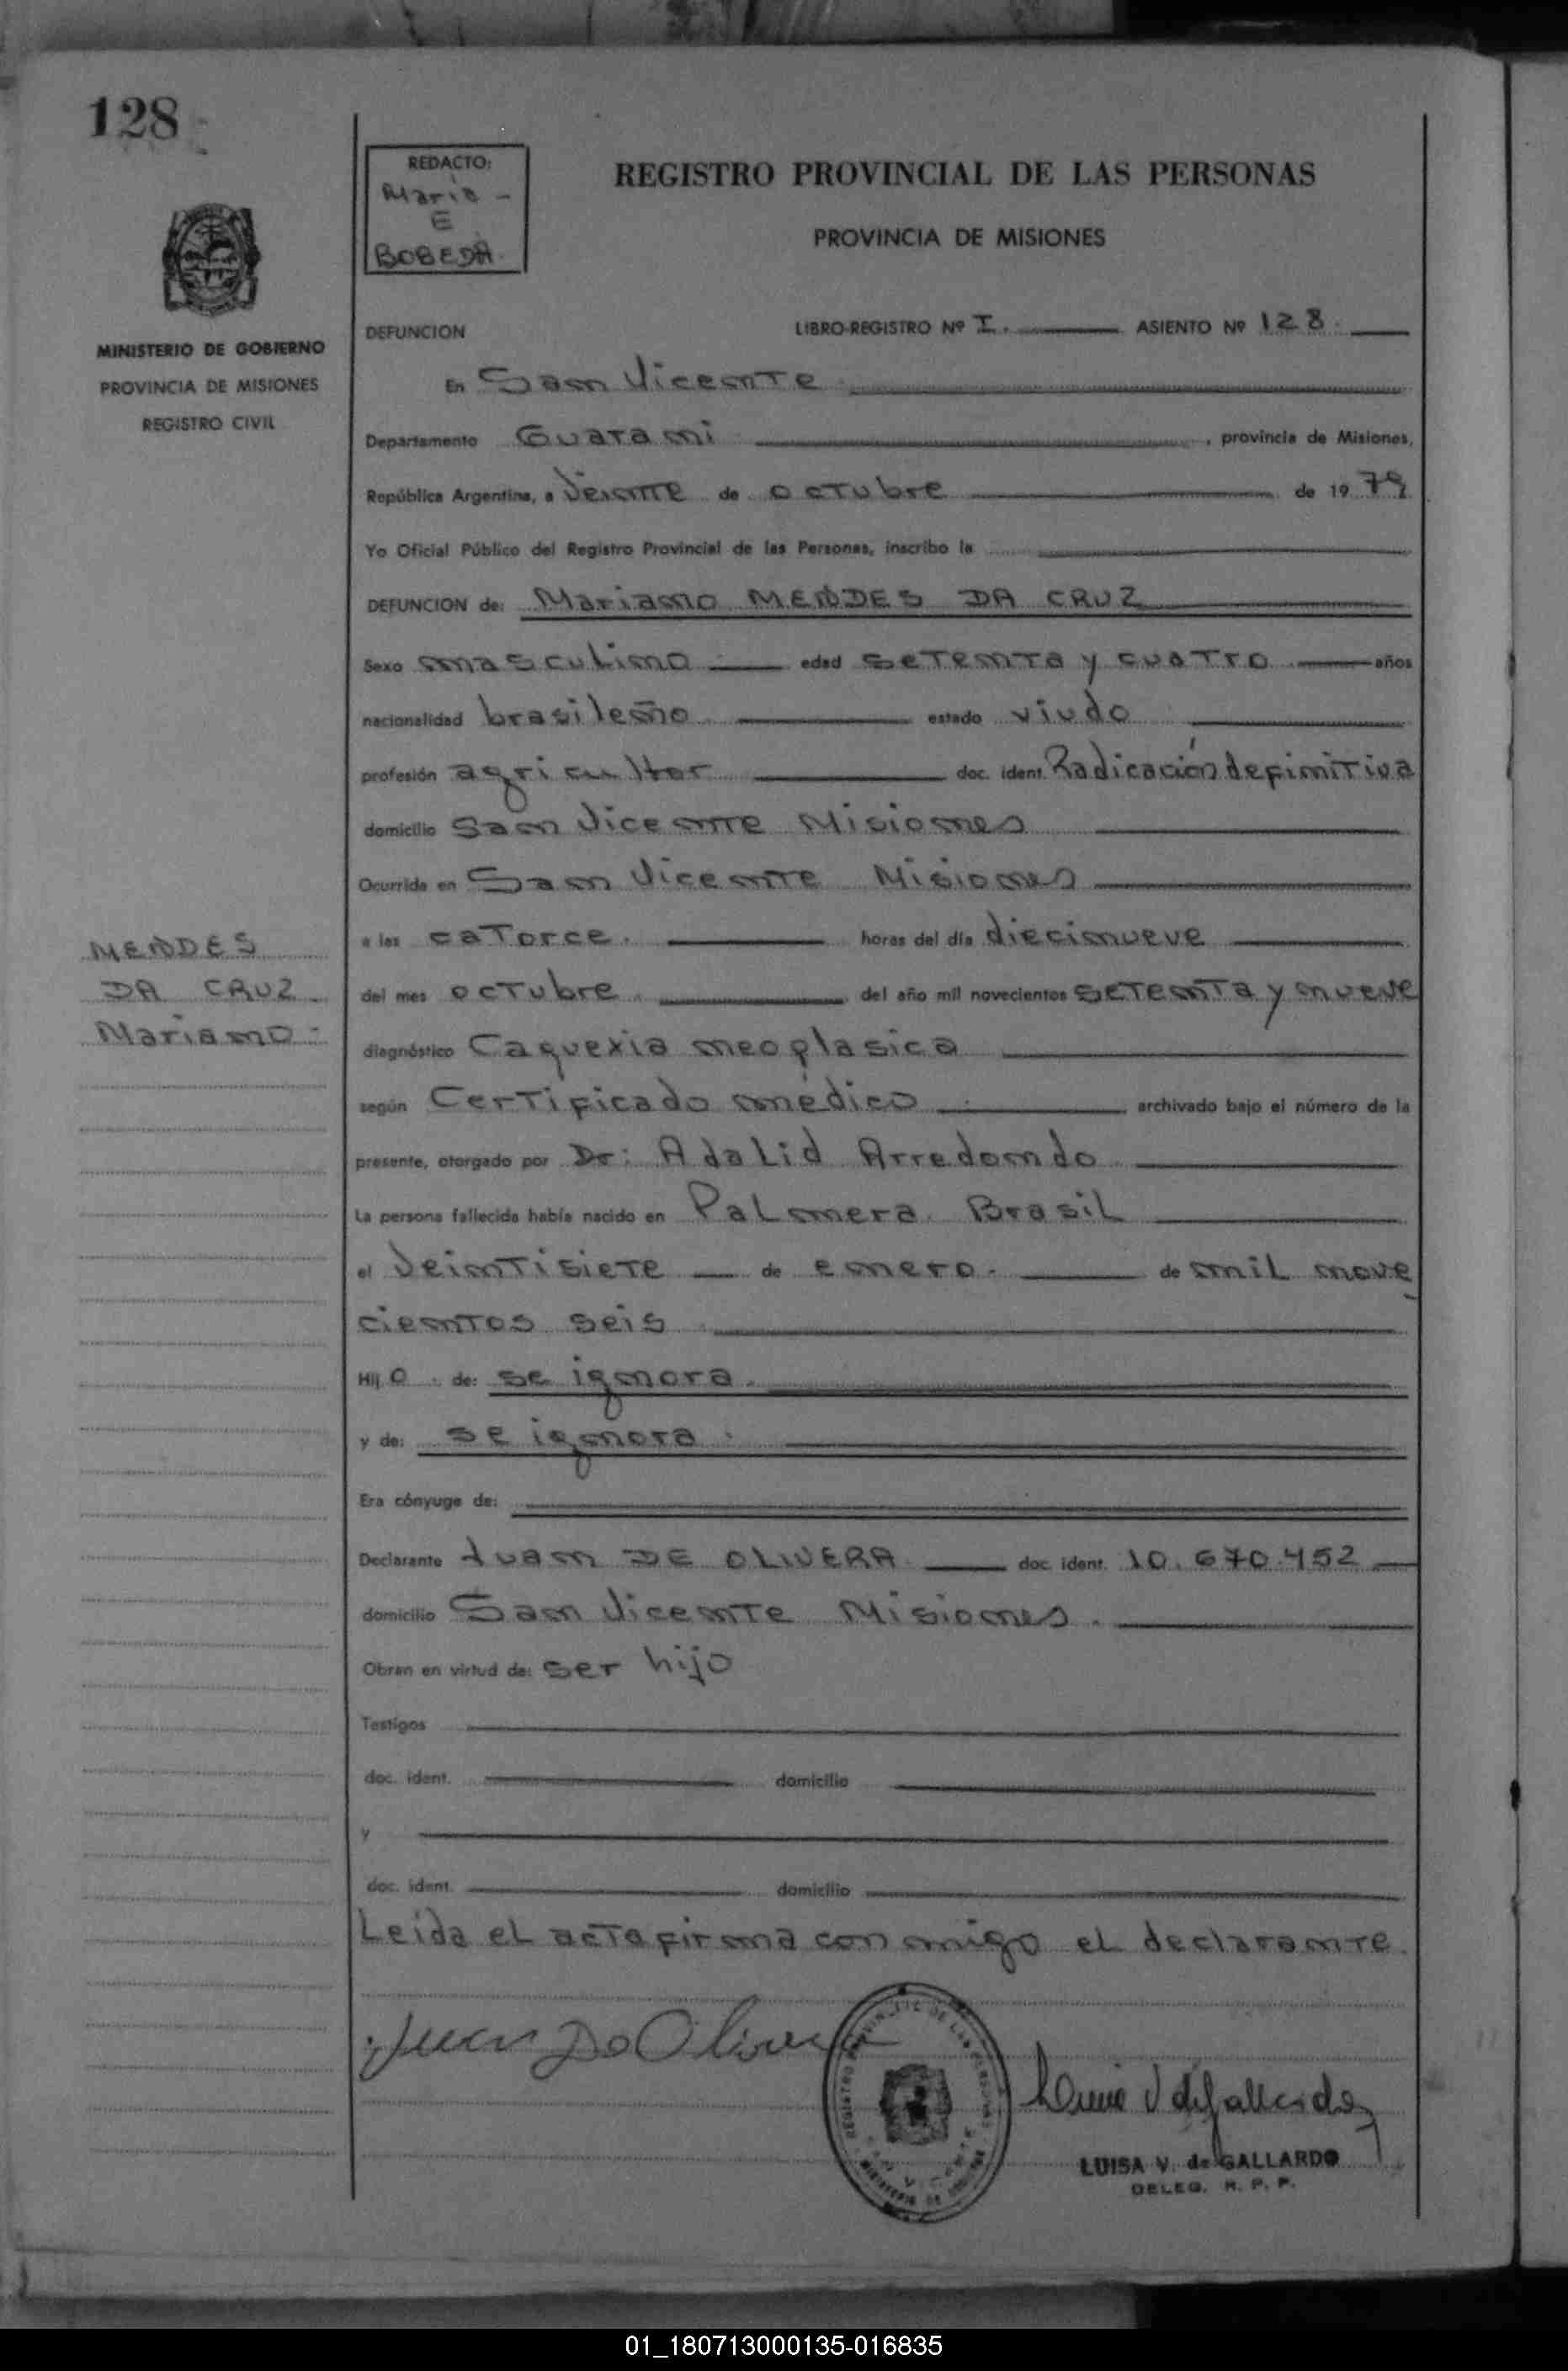 128
REDACTO:
Mario -
E
BOBEDA.
REGISTRO PROVINCIAL DE LAS PERSONAS
PROVINCIA DE MISIONES
MINISTERIO DE GOBIERNO
PROVINCIA DE MISIONES
REGISTRO CIVIL
DEFUNCION LIBRO-REGISTRO Nº I. ASIENTO Nº 128.
En San Vicente
Departamento Guarani , provincia de Misiones,
República Argentina, a veinte de octubre de 1979
Yo Oficial Público del Registro Provincial de las Personas, inscribo la
DEFUNCION de: Mariano MENDES DA CRUZ
Sexo masculino edad setenta y cuatro años
nacionalidad brasileño estado viudo
profesión agricultor doc. ident. Radicación definitiva
domicilio San Vicente Misiones
Ocurrida en San Vicente Misiones
a las catorce. horas del día diecinueve
del mes octubre. del año mil novecientos setenta y nueve
diagnóstico Caquexia neoplasica
según Certificado médico archivado bajo el número de la
presente, otorgado por Dr: Adalid Arredondo
La persona fallecida había nacido en Palmera. Brasil
el Veintisiete de enero. de mil nove
cientos seis
Hij o. de: se ignora.
y de: se ignora.
Era cónyuge de:
Declarante Juan DE OLIVERA doc. ident. 10.670.452
domicilio San Vicente Misiones.
Obran en virtud de: ser hijo
Testigos
doc. ident. domicilio
y
doc. ident. domicilio
Leida el acta firma con migo el declarante.
MENDES
DA CRUZ
Mariano.
Juan De Olivera
LUISA V. de GALLARDO
DELEG. R. P. P.
01_180713000135-016835